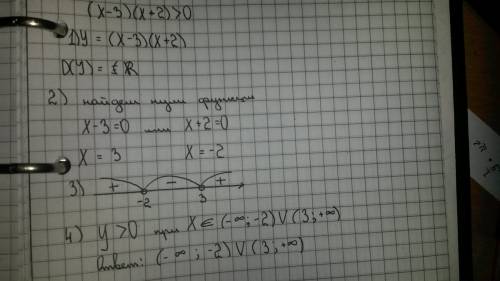 (x-3)(x+2)>0
1) y = (x-3)(x+2)
D(y) = ℝ
2) найдем нули функции
x-3=0 или x+2=0
x = 3 x = -2
3) + - +
-2 3
4) y>0 при x ∈ (-∞; -2) ∨ (3; +∞)
Ответ: (-∞; -2) ∨ (3; +∞)